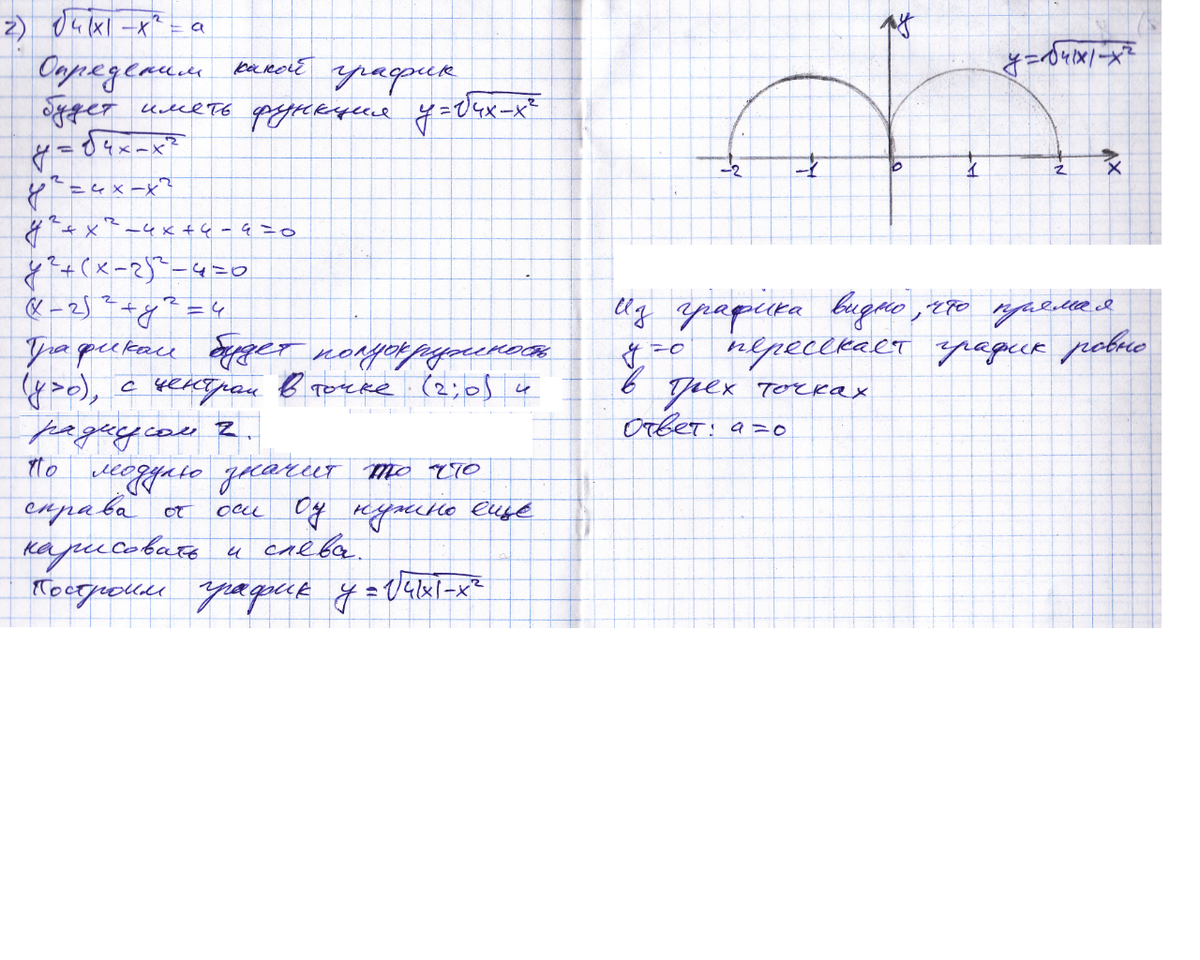 2) √4|x| -x² = a
Определим какой график
будет иметь функция y=√4x-x²
y = √4x-x²
y² = 4x-x²
y²+x²-4x+4-4=0
y²+(x-2)²-4=0
(x-2)²+y²=4
Графиком будет полуокружность
(y>0), с центром в точке (2;0) и
радиусом 2.
По модулю значит то что
справа от оси Oy нужно еще
нарисовать и слева.
Построим график y=√4|x|-x²
y
y=√4|x|-x²
-2 -1 0 1 2 x
Из графика видно, что прямая
y=0 пересекает график ровно
в трех точках
Ответ: a=0